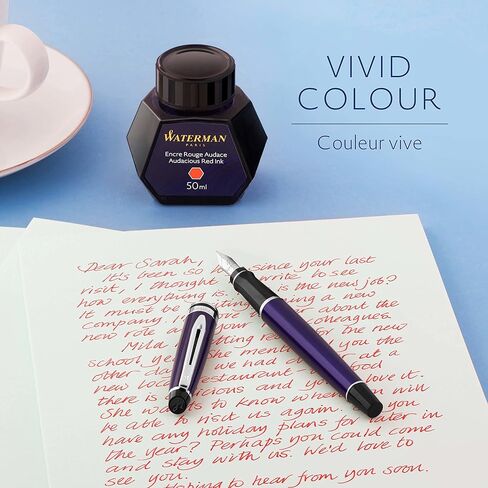 VIVID
COLOUR
Couleur vive
WATERMAN
PARIS
Encre Rouge Audace
Audacious Red Ink
50ml
Dear Sarah,
It's been so since your last
visit, I thought write to see
how everything is. is the new job?
It must be iting ing a new
company. I about the
new role a your colleagues.
Mila is tting re for the new
school ye She ment you the
other da we had d r at a
new loca estaurant food
there is icious and y ve it.
She wa to know when will
be able to visit us again. you
have any holiday plans for later in
the year? Perhaps you could come
and stay with us. We'd love to
see you.
Hoping to hear from you soon.